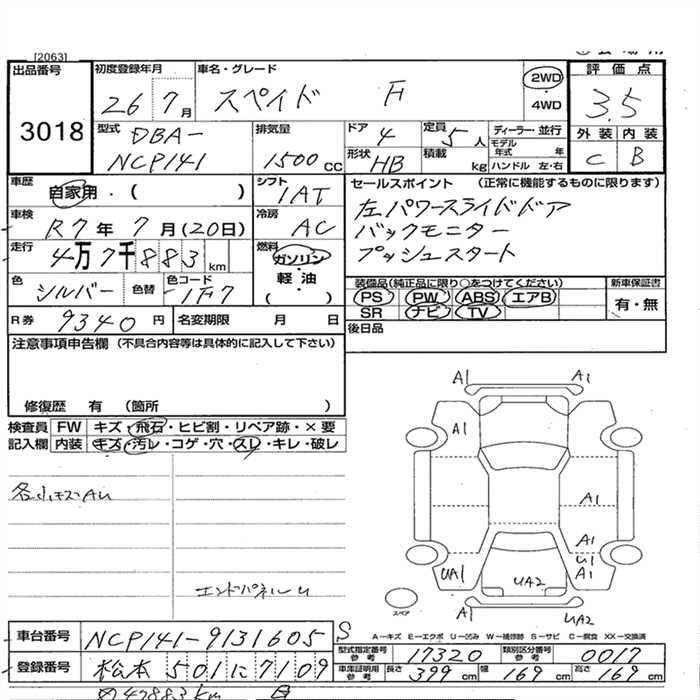 [2063]
出品番号
3018
初度登録年月
26 7月
車名・グレード
スペイド F
2WD
・
4WD
評価点
3.5
外装 内装
C B
型式
DBA-
NCP141
排気量
1500cc
ドア
4
定員
5人
形状
HB
積載
kg
ディーラー・並行
モデル年式 年
ハンドル 左・右
車歴
自家用・( )
シフト
IAT
車検
R7年7月(20日)
冷房
AC
走行
4万7千883km
燃料
ガソリン・
軽油
( ・ )
色
シルバー
色替
色コード
1F7
R券
9340円
名変期限 月 日
セールスポイント (正常に機能するものに限ります)
左パワースライドドア
バックモニター
プッシュスタート
装備品(純正品に限り○をつけてください)
PS PW ABS エアB
SR ナビ TV
新車保証書
有・無
後日品
注意事項申告欄(不具合内容等は具体的に記入して下さい)
修復歴 有 (箇所 )
検査員
記入欄
FW キズ・飛石・ヒビ割・リペア跡・×要
内装 キズ・汚レ・コゲ・穴・スレ・キレ・破レ
各小キズAU
エンドパネルU
A1 A1
A1
A1
A1
U1
UA1 A1
UA2
A1 UA2
スペア
A-キズ E-エクボ U-凹み W-補修跡 S-サビ C-腐食 XX-交換済
車台番号
NCP141-9131605
S
登録番号
松本501に7109
型式指定番号参考
17320
類別区分番号
0017
車庫証明用参考
長さ 399cm 幅 169cm 高さ 169cm
47883km